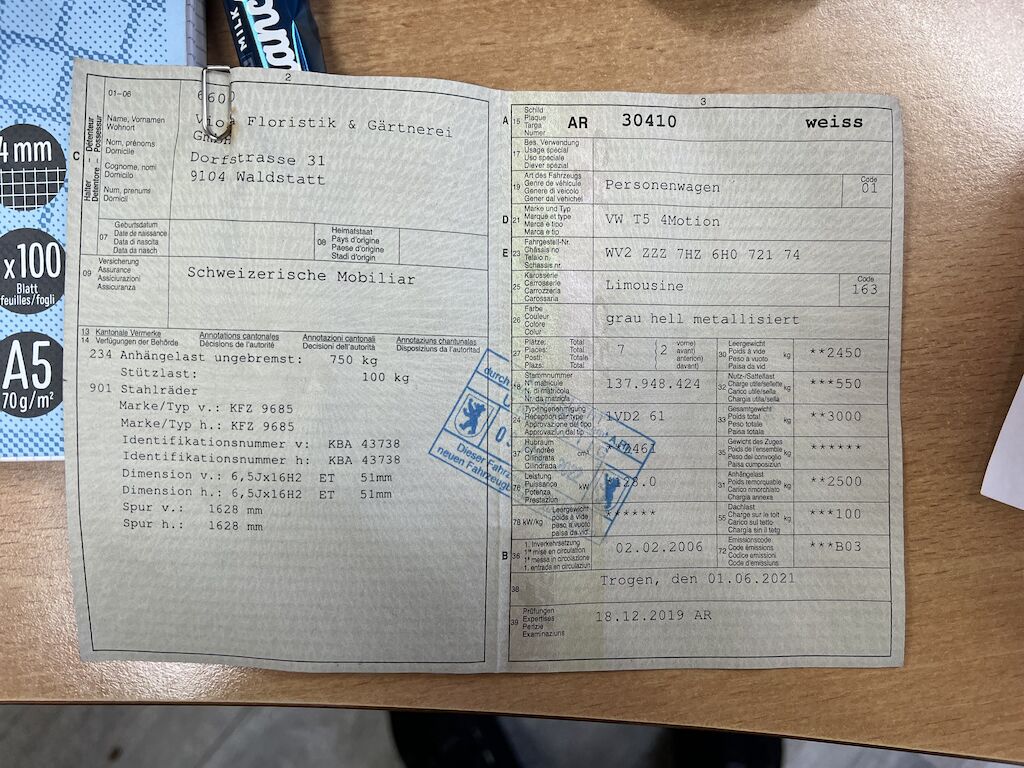 MILK
4 mm
x100
Blatt
feuilles/fogli
A5
70 g/m²
2
C
Halter – Détenteur
Detentore – Possessur
01–06
Name, Vornamen
Wohnort
Nom, prénoms
Domicile
Cognome, nomi
Domicilio
Num, prenums
Domicil
6600
Viola Floristik & Gärtnerei
GmbH
Dorfstrasse 31
9104 Waldstatt
07
Geburtsdatum
Date de naissance
Data di nascita
Data da nasch
08
Heimatstaat
Pays d'origine
Paese d'origine
Stadi d'origin
09
Versicherung
Assurance
Assiciurazioni
Assicuranza
Schweizerische Mobiliar
13 Kantonale Vermerke
14 Verfügungen der Behörde
Annotations cantonales
Décisions de l'autorité
Annotazioni cantonali
Decisioni dell'autorità
Annotaziuns chantunalas
Disposiziuns da l'autoritad
234 Anhängelast ungebremst: 750 kg
Stützlast: 100 kg
901 Stahlräder
Marke/Typ v.: KFZ 9685
Marke/Typ h.: KFZ 9685
Identifikationsnummer v: KBA 43738
Identifikationsnummer h: KBA 43738
Dimension v.: 6,5Jx16H2 ET 51mm
Dimension h.: 6,5Jx16H2 ET 51mm
Spur v.: 1628 mm
Spur h.: 1628 mm
durch
Dieser Fahrz
neuen Fahrzeug
3
A 15
Schild
Plaque
Targa
Numer
AR 30410 weiss
17
Bes. Verwendung
Usage spécial
Uso speciale
Diever spezial
19
Art des Fahrzeugs
Genre de véhicule
Genere di veicolo
Gener dal vehichel
Personenwagen
Code
01
D 21
Marke und Typ
Marque et type
Marca e tipo
Marca e tip
VW T5 4Motion
E 23
Fahrgestell-Nr.
Châssis no
Telaio n.
Schassis nr.
WV2 ZZZ 7HZ 6H0 721 74
25
Karosserie
Carrosserie
Carrozzeria
Carossaria
Limousine
Code
163
26
Farbe
Couleur
Colore
Colur
grau hell metallisiert
27
Plätze: Total
Places: Total
Posti: Totale
Plazs: Total
7
(2 vorne)
avant)
anteriori)
davant)
30
Leergewicht
Poids à vide
Peso a vuoto
Paisa da vid
kg
**2450
18
Stammnummer
N° matricule
N. di matricola
Nr. da matricla
137.948.424
32
Nutz-/Sattellast
Charge utile/sellette
Carico utile/sella
Chargia utila/sella
kg
***550
24
Typengenehmigung
Réception par type
Approvazione del tipo
Approvaziun dal tip
1VD2 61
33
Gesamtgewicht
Poids total
Peso totale
Paisa totala
kg
**3000
37
Hubraum
Cylindrée
Cilindrata
Cilindrada
cm³
**2461
35
Gewicht des Zuges
Poids de l'ensemble
Peso del convoglio
Paisa composiziun
kg
******
76
Leistung
Puissance
Potenza
Prestaziun
kW
*128.0
31
Anhängelast
Poids remorquable
Carico rimorchiato
Chargia annexa
kg
**2500
78 kW/kg
Leergewicht
poids à vide
peso a vuoto
paisa da vid
******
55
Dachlast
Charge sur le toit
Carico sul tetto
Chargia sin il tetg
kg
***100
B 36
1. Inverkehrsetzung
1re mise en circulation
1a messa in circolazione
1. entrada en circulaziun
02.02.2006
72
Emissionscode
Code émissions
Codice emissioni
Code d'emissiuns
***B03
38
Trogen, den 01.06.2021
39
Prüfungen
Expertises
Perizie
Examinaziuns
18.12.2019 AR